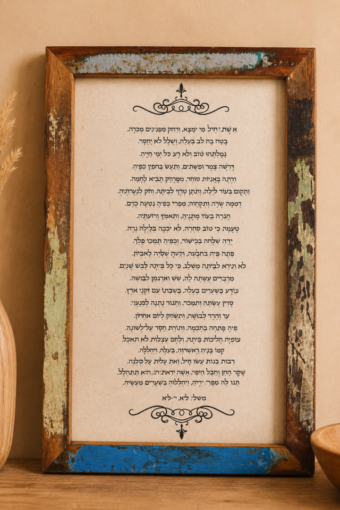 אשת־חיל מי ימצא, ורחק מפנינים מכרה.
בטח בה לב בעלה, ושלל לא יחסר.
גמלתהו טוב ולא רע כל ימי חייה.
דרשה צמר ופשתים, ותעש בחפץ כפיה.
היתה באניות סוחר, ממרחק תביא לחמה.
ותקם בעוד לילה, ותתן טרף לביתה, וחק לנערתיה.
זממה שדה ותקחהו, מפרי כפיה נטעה כרם.
חגרה בעוז מתניה, ותאמץ זרועתיה.
טעמה כי טוב סחרה, לא יכבה בלילה נרה.
ידיה שלחה בכישור, וכפיה תמכו פלך.
כפה
לא תירא לביתה משלג, כי כל ביתה לבש שנים.
מרבדים עשתה לה, שש וארגמן לבושה.
נודע בשערים בעלה, בשבתו עם זקני ארץ
סדין עשתה ותמכר, וחגור נתנה לכנעני.
עז והדר לבושה, ותשחק ליום אחרון.
פיה פתחה בחכמה, ותורת חסד על־לשונה.
צופיה הליכות ביתה, ולחם עצלות לא תאכל.
קמו בניה ויאשרוה, בעלה ויהללה.
רבות בנות עשו חיל, ואת עלית על כלנה.
שקר החן והבל היפי, אשה יראת־ה׳, היא תתהלל.
תנו לה מפרי ידיה, ויהללוה בשערים מעשיה.
משלי ל״א, י׳־ל״א